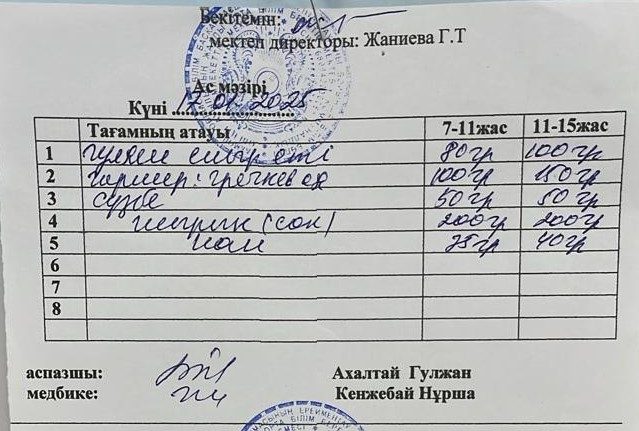 Бекітемін:
мектеп директоры: Жаниева Г.Т
Ас мәзірі
Күні 17.01.2025
Тағамның атауы 7-11жас 11-15жас
1 гуляш сиыр еті 80гр 100гр
2 гарнир: гречкевая 100гр 150гр
3 сүзбе 50гр 50гр
4 шырын (сок) 200гр 200гр
5 нан 35гр 40гр
6
7
8
аспазшы: Ахалтай Гулжан
медбике: Кенжебай Нұрша